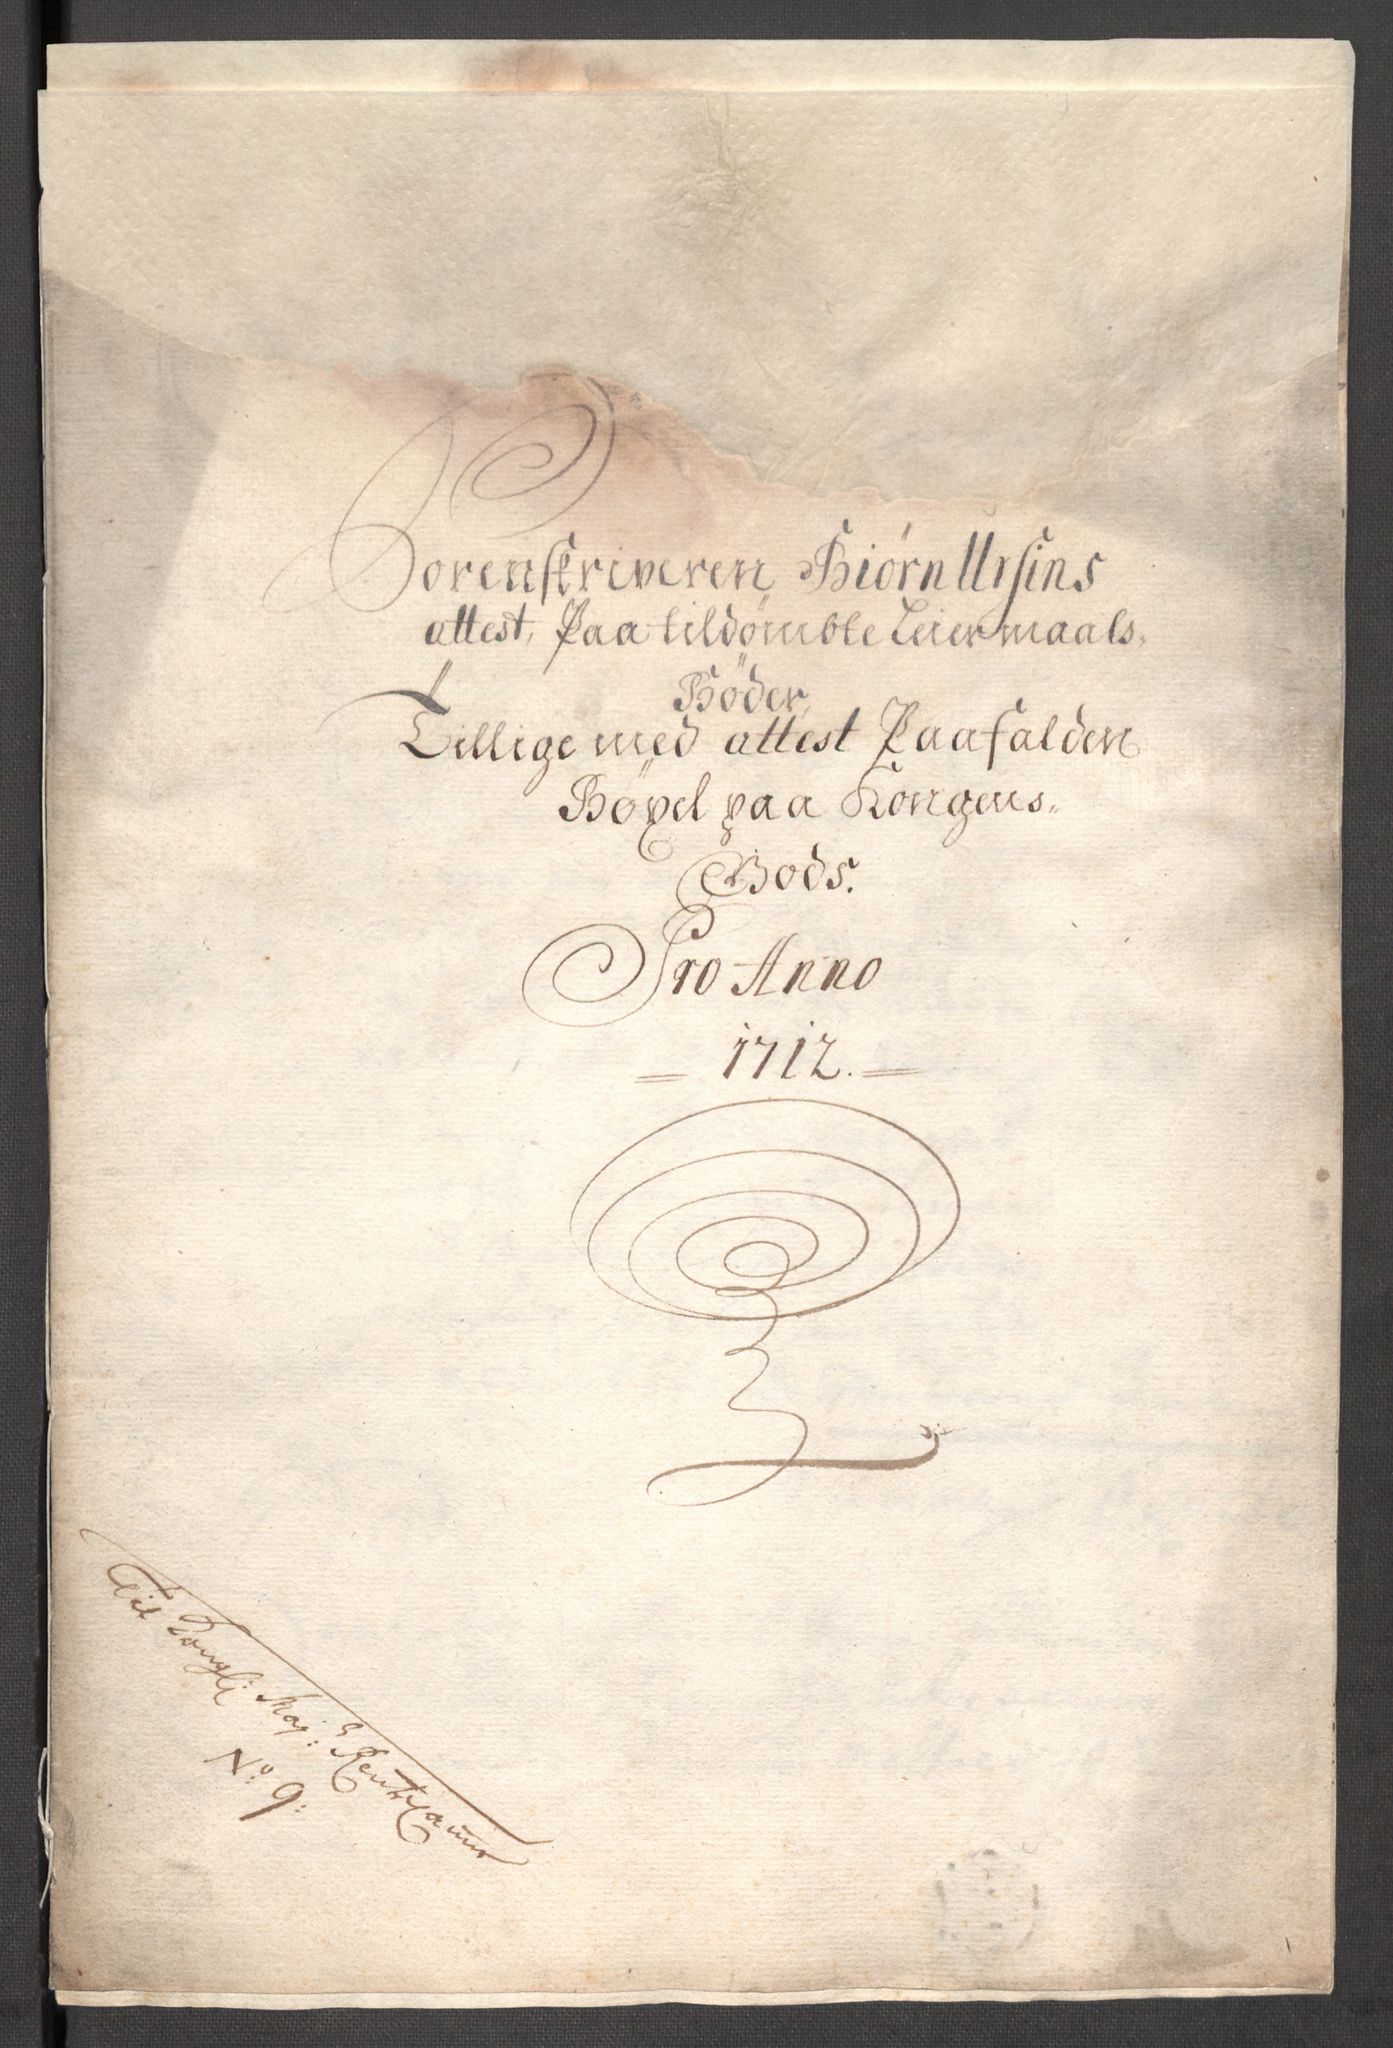 Sorenskriveren Biörn Ursins
attest, Paa tildömbte Leiermaals
Böder,
Tillige med attest Paafalden
Böxel paa Kongens
Gods.
Pro Anno
1712.
Till Kongl: May:s Rentecammer
No: 9: